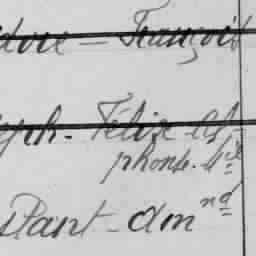 dore - François
eph. Félix Al-
phonse.
stant - Am nd